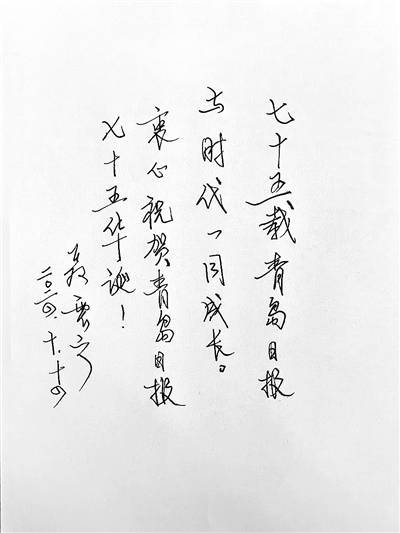 七十五载青岛日报
与时代一同成长。
衷心祝贺青岛日报
七十五华诞！
聂震宁
二〇二四.十.十四